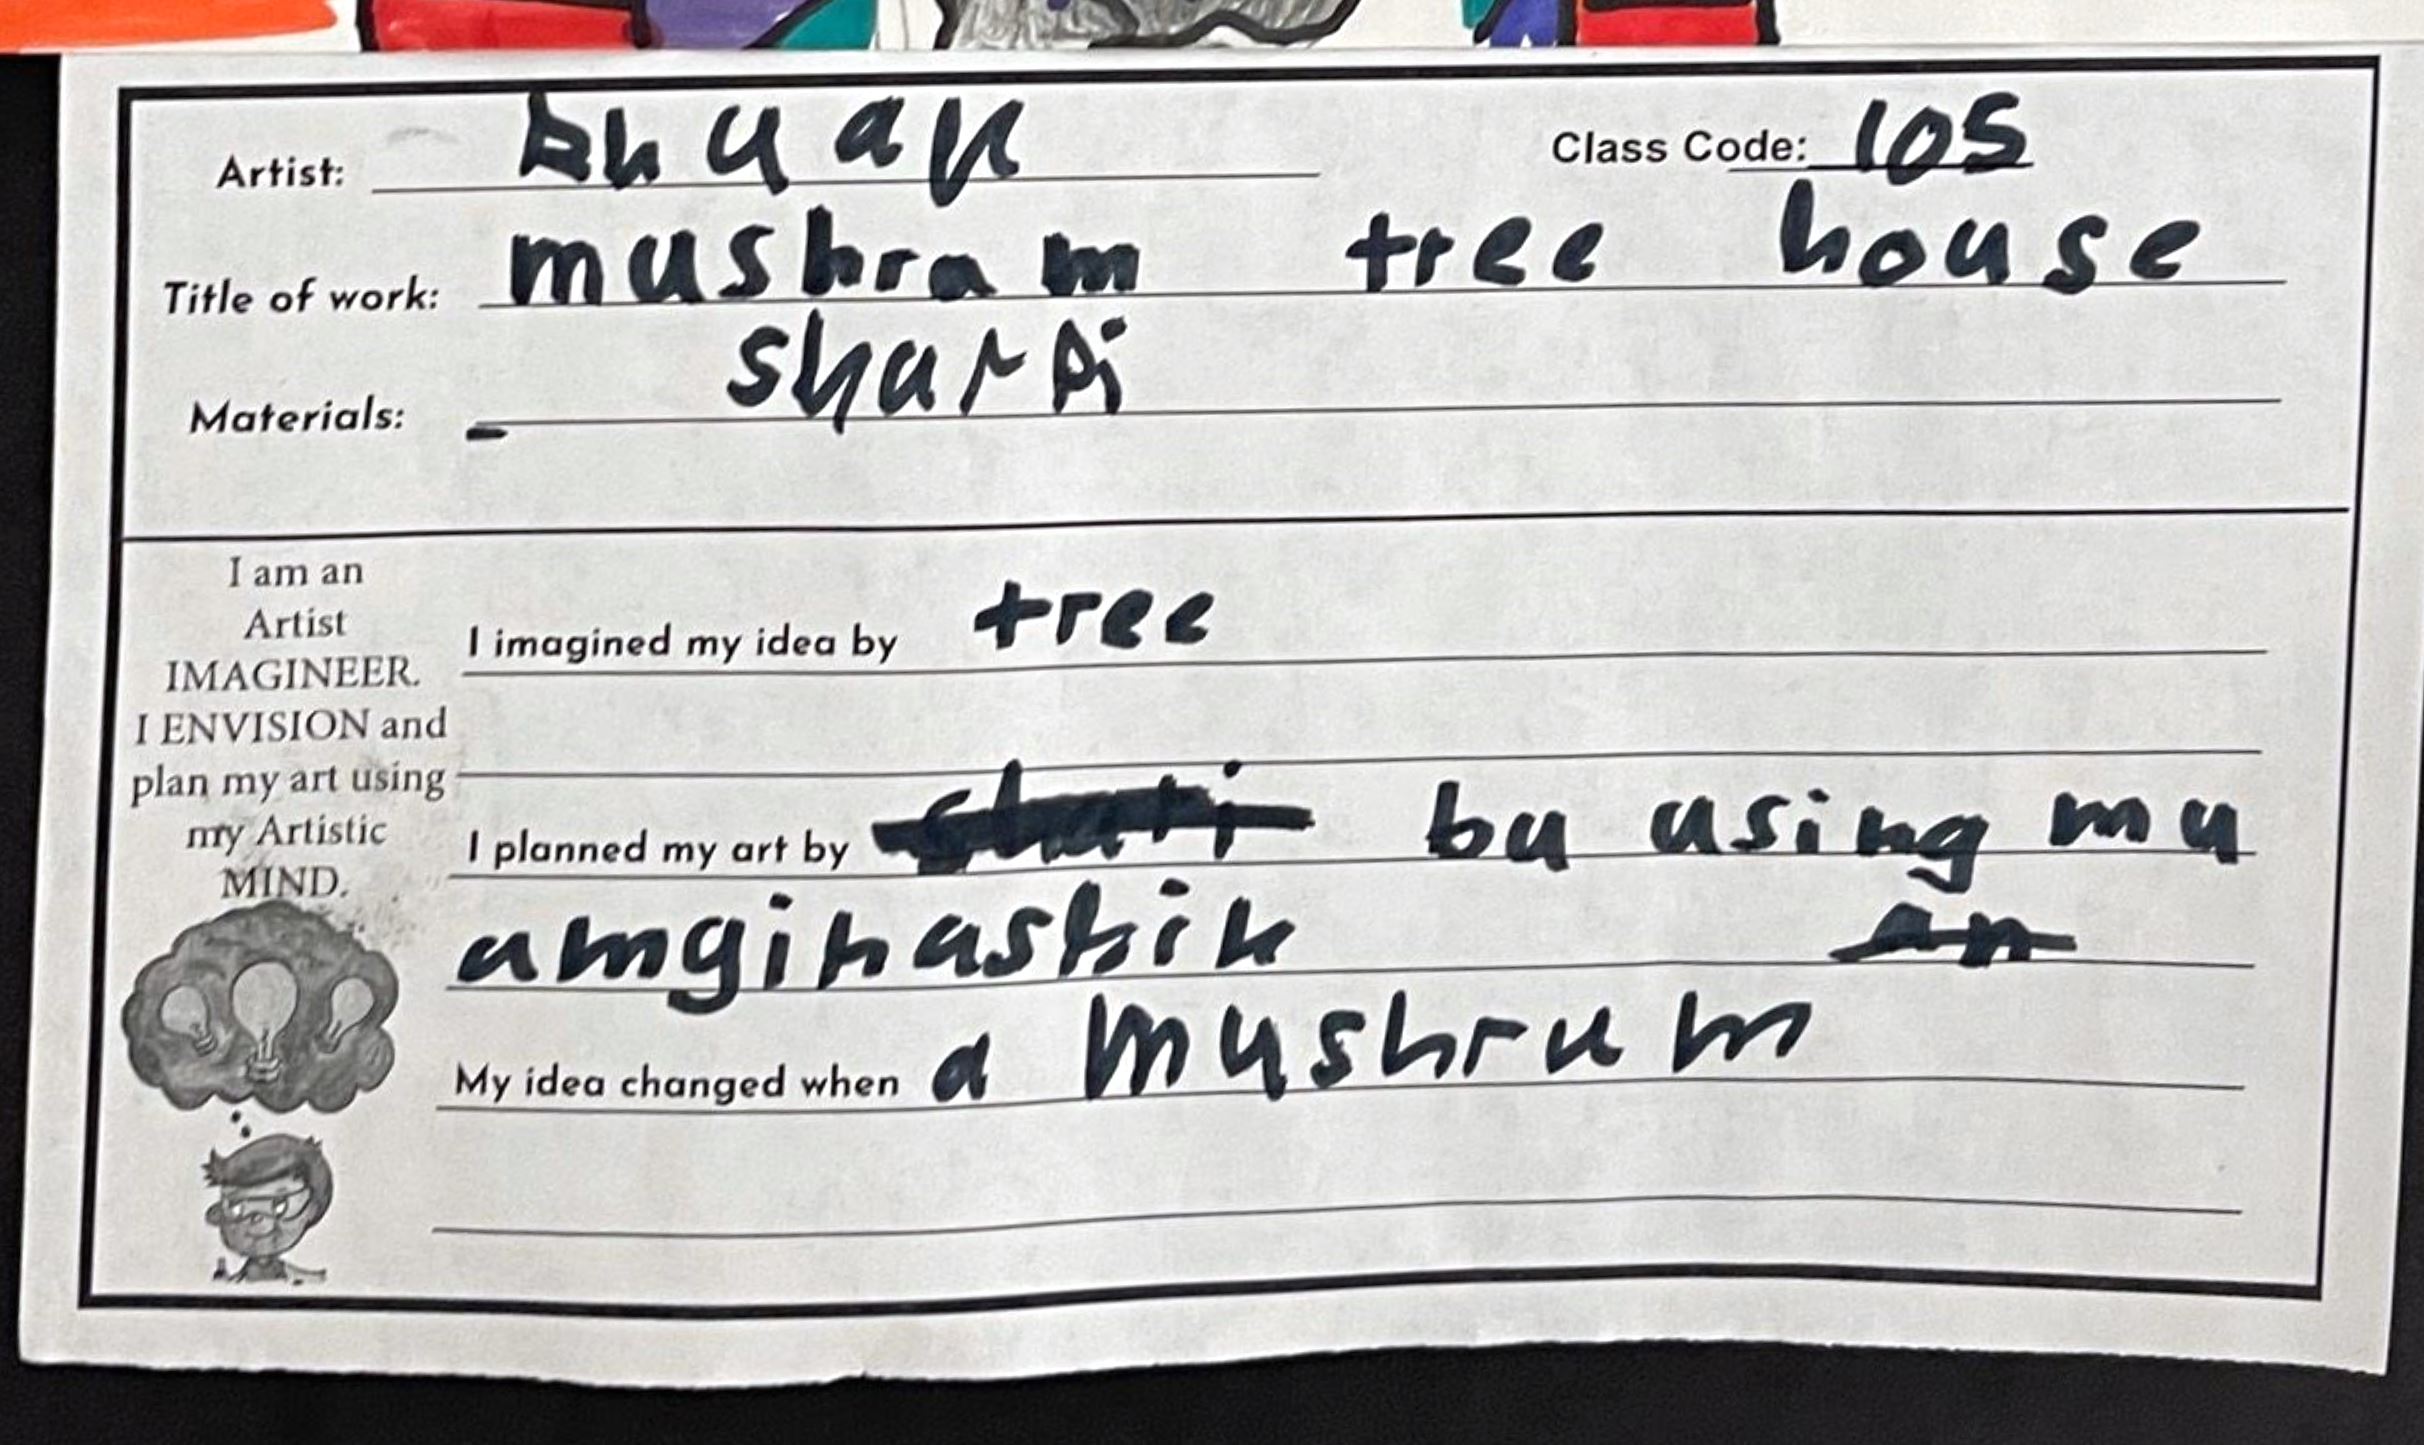 Artist: Class Code: 105
Title of work: mushram tree house
Materials: sharpi
I am an
Artist
IMAGINEER.
I ENVISION and
plan my art using
my Artistic
MIND.
I imagined my idea by tree
I planned my art by bu using mu
amginashin an
My idea changed when a mushrum